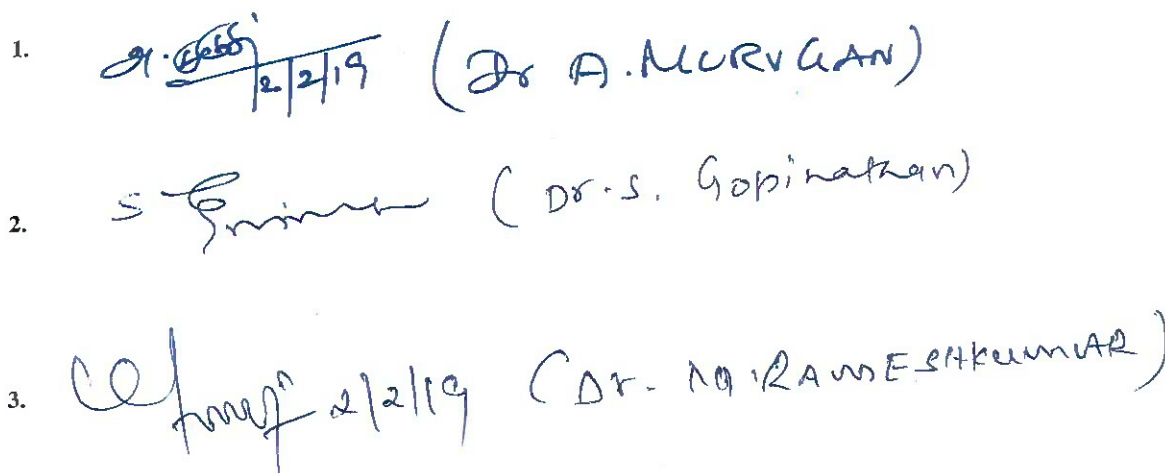 1. 2/2/19 (Dr A. MURUGAN)
2. S (Dr. S. Gopinathan)
3. 2/2/19 (Dr. M. RAMESHKUMAR)